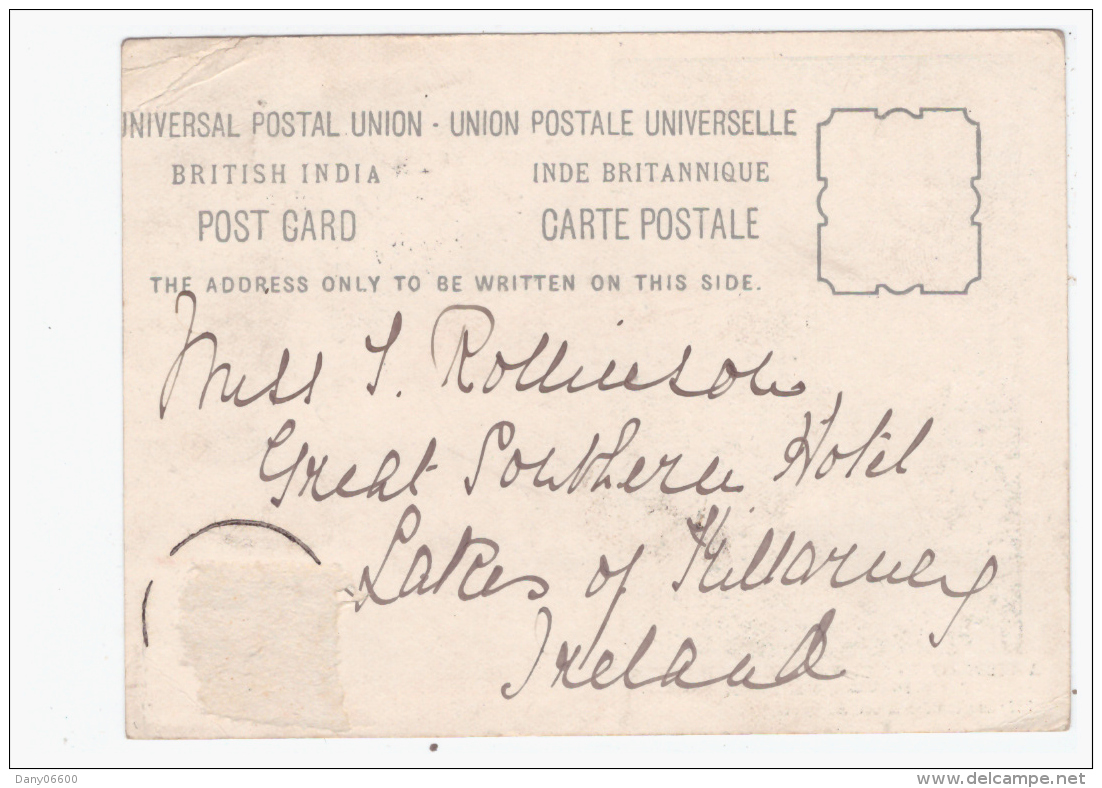 UNIVERSAL POSTAL UNION · UNION POSTALE UNIVERSELLE
BRITISH INDIA INDE BRITANNIQUE
POST CARD CARTE POSTALE
THE ADDRESS ONLY TO BE WRITTEN ON THIS SIDE.
Miss S. Rollinson
Great Southern Hotel
Lakes of Killarney
Ireland
Dany06600
www.delcampe.net